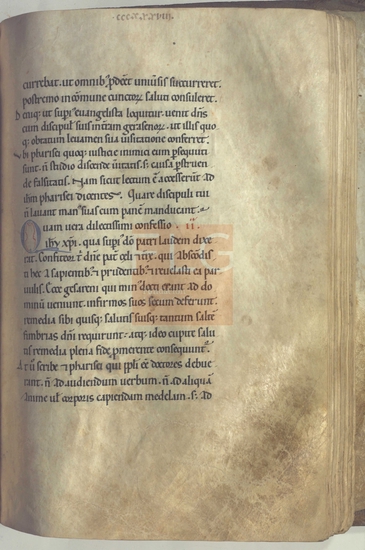 currebat. ut omnib; pdeet uniusis succurreret.
postremo in cōmune cunctoꝝ saluti consuleret.
Deniq; ut supᵉ euangelista loquitur. uenit dn̄s
cum discipul suis in tr̄am gerasenoꝝ. ut illis quo
q; obtatum leuamen sua uisitatione conferret.
Ibi pharisei quoq; iusticie inimici eum psequuti
sunt. n̄ studio discende ūitatis. s; causa pstruen
de falsitatis. Nam sicut lectum ē accesserūt ad
ihm pharisei dicentes. Quare discipuli tui
n̄ lauant man suas cum panē manducant.
Quam uera dilectissimi confessio .ii.
ihu xpi. qua supᵉ dō patri laudem dixe
rat. Confiteor t' dn̄e pat' celi ⁊ tre. qui abscondis
ti hec a sapientib; ⁊ prudentib; ⁊ reuelasti ea par
uulis. Ecce gesereni qui min docti erant ad do
minū uenunt. infirmos suos secum deferunt.
remedia sibi quisq; salutis suisq; tantum saltē
fimbrias dn̄i requirunt. atq; ideo cupite salu
tis remedia plena fide pmerente consequunt'.
At ū scribe ⁊ pharisei qui ppli eē doctores debue
rant. n̄ ad audiendum uerbum. n̄ ad aliquā
anime ul' corporis capiendam medelam. s; ad